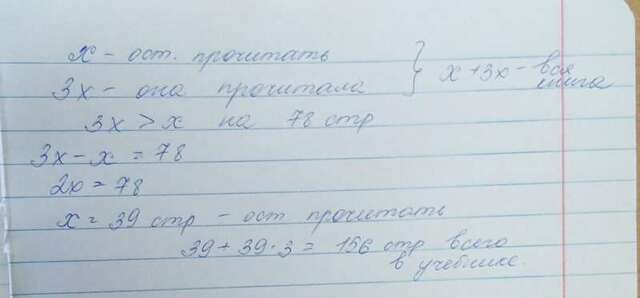 x - ост. прочитать
3x - она прочитала } x + 3x - вся книга
3x > x на 78 стр
3x - x = 78
2x = 78
x = 39 стр - ост прочитать
39 + 39·3 = 156 стр всего
в учебнике.